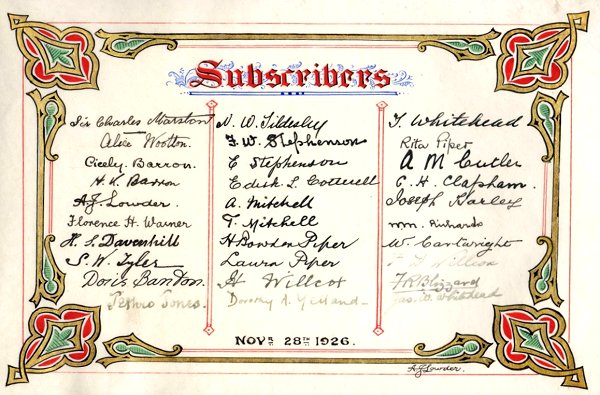 Subscribers
Sir Charles Marston
Alice Wootton.
Cicely Barron.
H. V. Barron
A.J. Lowder.
Florence H. Warner
H. S. Davenhill
S. W. Tyler
Doris Banton.
Jethro Jones.
N. W. Tildesley
F. W. Stephenson
E Stephenson
Edith L Cottwell
A. Mitchell
T. Mitchell
H Bowden Piper
Laura Piper
H Willcox
Dorothy A.
T. Whitehead
Rita Piper
A M Cutler
C. H. Clapham.
Joseph Harley
Wm. Richards
W. Cartwright
F J Willcox
F R Blizzard
Jas. W. Whitehead
NOVR 28TH 1926.
A.J. Lowder.